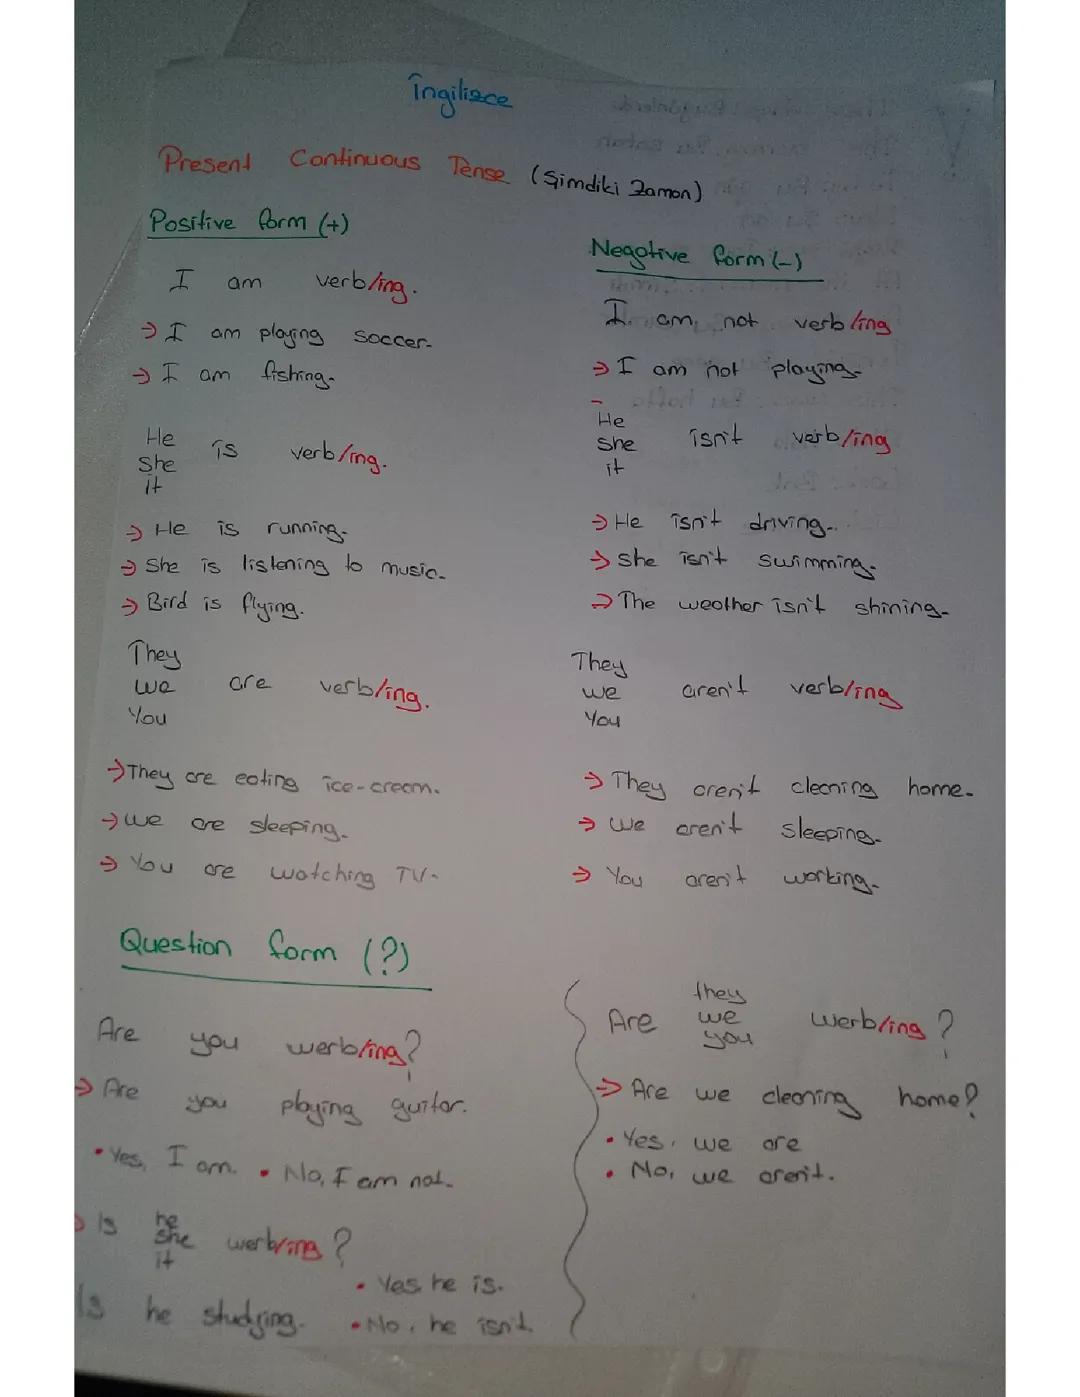 İngilizce
Present Continuous Tense (Şimdiki Zaman)
Positive form (+)
I am verb/ing.
→ I am playing soccer.
→ I am fishing.
He
She
it
is verb/ing.
→ He is running.
→ She is listening to music.
→ Bird is flying.
They
we
You
are verb/ing.
→ They are eating ice-cream.
→ we are sleeping.
→ You are watching TV.
Negative form (-)
I am not verb/ing
→ I am not playing.
He
She
it
isn't verb/ing
→ He isn't driving.
→ She isn't swimming.
→ The weather isn't shining.
They
we
You
aren't verb/ing
→ They aren't cleaning home.
→ we aren't sleeping.
→ You aren't working.
Question form (?)
Are you werb/ing?
→ Are you playing guitar.
• Yes, I am. • No, I am not.
Is he
she
it
werb/ing?
Is he studying.
• Yes he is.
• No, he isn't.
Are they
we
you
werb/ing?
→ Are we cleaning home?
• Yes, we are
• No, we aren't.